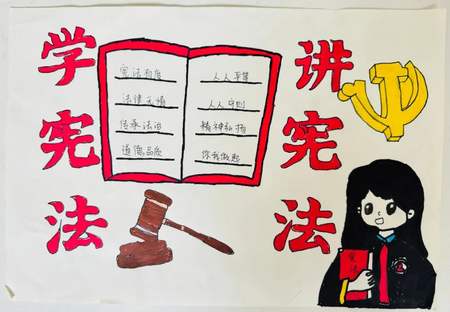 学宪法
讲宪法
宪法有度
法律无情
传承法治
道德品质
人人平等
人人守则
精神弘扬
你我做起
宪法